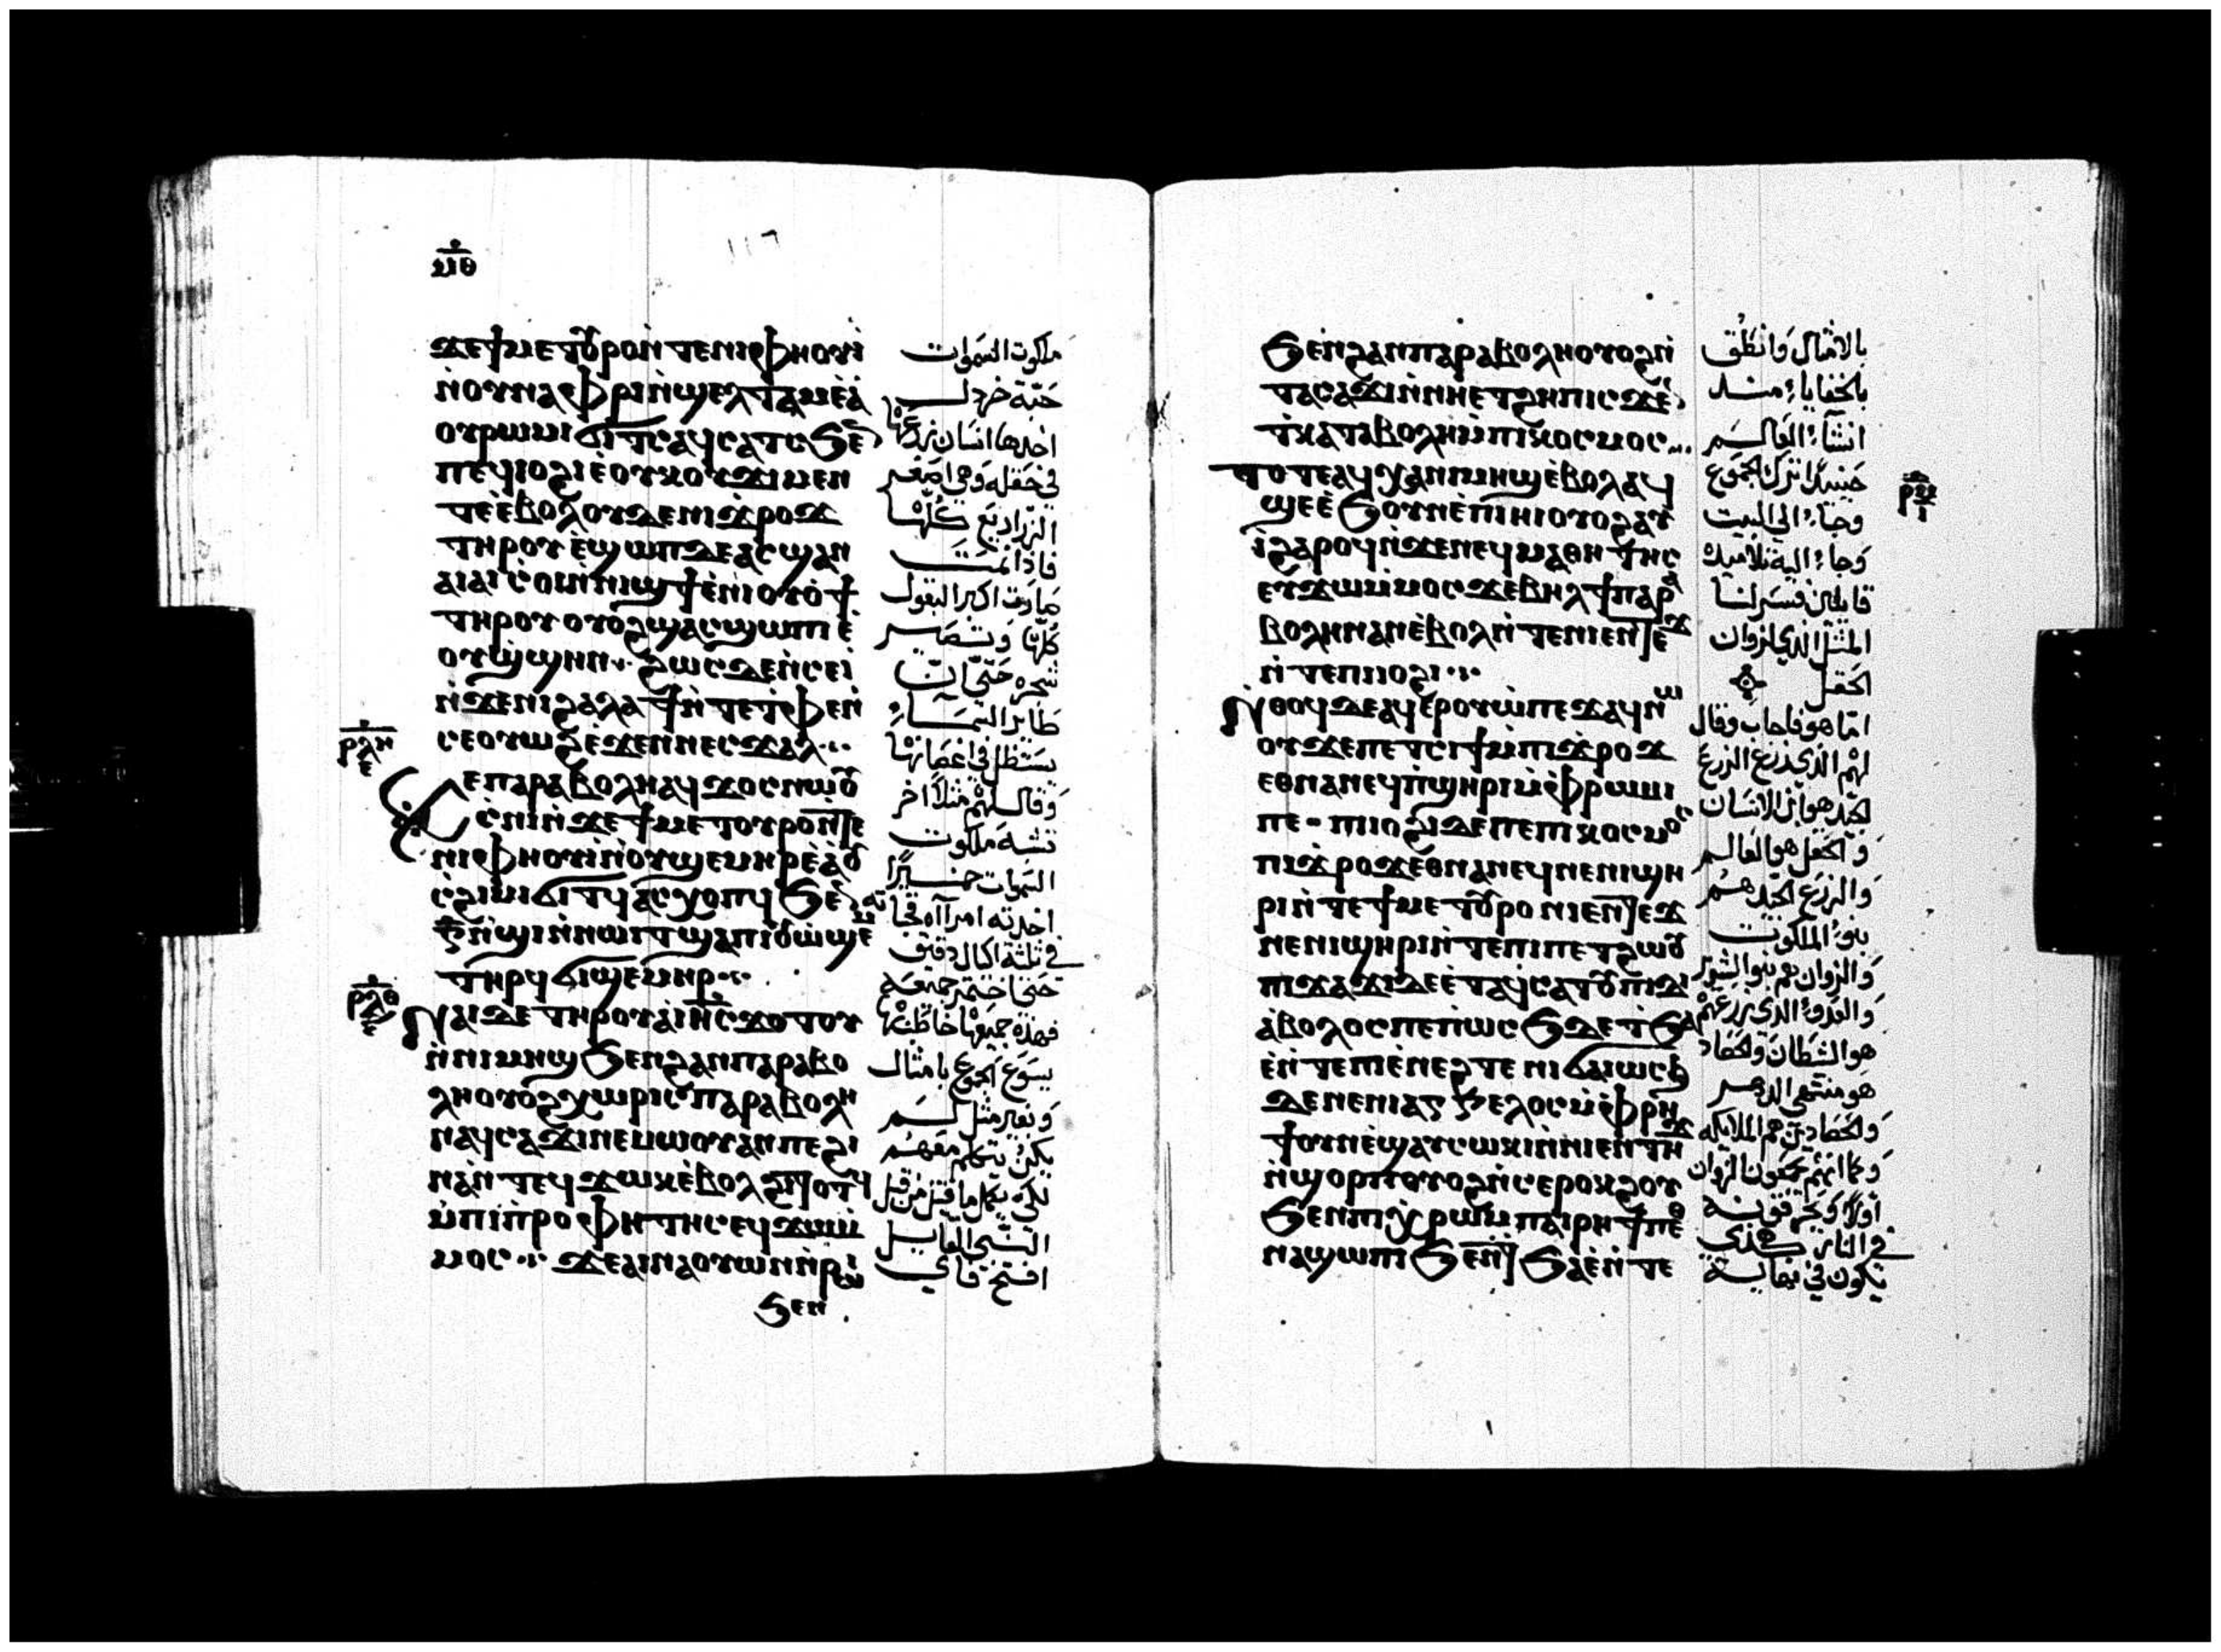 ⲙⲑ
١١٦
ϫⲉ ϯⲙⲉⲧⲟⲩⲣⲟ ⲛ̀ⲧⲉ ⲛⲓⲫⲏⲟⲩⲓ̀
ⲛ̀ⲟⲩⲛⲁⲫⲣⲓ ⲛ̀ϣⲉⲗⲧⲁⲙ ⲉ̀ⲁ̀
ⲟⲩⲣⲱⲙⲓ ϭⲓⲧⲥ ⲁϥⲥⲁⲧⲥ ϧⲉⲛ̄
ⲡⲉϥⲓⲟϩⲓ ⲉ̀ⲟⲩⲕⲟⲩϫⲓ ⲙⲉⲛ
ⲧⲉ ⲉ̀ⲃⲟⲗ ⲟⲩⲇⲉ ⲛⲓϫ̀ⲣⲟϫ
ⲧⲏⲣⲟⲩ ⲉ̀ϣⲱⲡ ⲇⲉ ⲁⲥϣⲁⲛ
ⲁⲓⲁⲓ ⲥ̀ⲟⲓ ⲛ̀ⲛⲓϣϯ ⲉ̀ⲛⲓⲟⲩⲟϯ
ⲧⲏⲣⲟⲩ ⲟⲩⲟϩ ϣⲁⲥϣⲱⲡⲓ ⲉ̀
ⲟⲩϣ̀ϣⲏⲛ ϩⲱⲥⲇⲉ ⲛ̀ⲥⲉⲓ̀
ⲛ̀ϫⲉ ⲛⲓϩⲁⲗⲁϯ ⲛ̀ⲧⲉ ⲧ̀ⲫⲉ ⲛ̀
ⲥⲉⲟⲩⲱϩ ⲉ̀ϫⲉⲛ ⲛⲉⲥϫⲁⲗ
ⲣⲗⲏ
ⲕⲉ ⲡⲁⲣⲁⲃⲟⲗⲏ ⲁϥϫⲟⲥ ⲛⲱⲟⲩ
ⲥ̀ⲟ̀ⲛⲓ ⲛ̀ϫⲉ ϯⲙⲉⲧⲟⲩⲣⲟ ⲛ̀ⲧⲉ
ⲛⲓⲫⲏⲟⲩⲓ̀ ⲛ̀ⲟⲩϣⲉⲙⲏⲣ ⲉ̀ⲁ̀ⲟⲩ
ⲥ̀ϩⲓⲙⲓ ϭⲓⲧϥ ⲁⲥⲭⲟⲡϥ ϧⲉⲛ
ⲅ̄ ⲛ̀ϣⲓ ⲛ̀ⲛⲱⲓⲧ ϣⲁⲛⲧⲟⲩϣⲱ
ⲧⲏⲣϥ ϭⲓϣⲉⲙⲏⲣ
ⲣⲗⲑ
ⲛⲁⲓ ⲇⲉ ⲧⲏⲣⲟⲩ ⲁ̀ ⲓⲏⲥ ϫⲟⲧⲟⲩ
ⲛ̀ⲛⲓⲙⲏϣ ϧⲉⲛ ϩⲁⲛⲡⲁⲣⲁⲃⲟ
ⲗⲏ ⲟⲩⲟϩ ⲭⲱⲣⲓⲥ ⲡⲁⲣⲁⲃⲟⲗⲏ
ⲛⲁϥⲥⲁϫⲓ ⲛⲉⲙⲱⲟⲩ ⲁⲛ ⲡⲉ ϩⲓ
ⲛⲁ ⲛ̀ⲧⲉϥϫⲱⲕ ⲉ̀ⲃⲟⲗ ϩⲓⲧⲟⲧϥ
ⲙ̀ⲡⲓⲡⲣⲟⲫⲏⲧⲏⲥ ⲉϥϫⲱⲙ̀
ⲙⲟⲥ ϫⲉ ⲁⲓⲛⲁⲟⲩⲱⲛ ⲛ̀ⲣⲱⲓ
ϧⲉⲛ
ملكوت السموات
حبّة خردل
اخدها انسان زرعها
في حقله وهي اصغر
الزراريع كلها
فاذا نمت
صارت اكبر البقول
كلها وتصير
شجره حتى ان
طاير السماء
يستظل في اغصانها
وقال لهم مثلاً اخر
تشبه ملكوت
السموات خميراً
اخدته امراه خباته
في ثلثة اكيال دقيق
حتى اختمر جميعه
فهذه جميعها خاطب بها
يسوع الجموع بامثال
وبغير مثل لم
يكن يكلمهم
لكي يكمل ما قيل من قبل
النبي القايل
افتح فاي
ϧⲉⲛ ϩⲁⲛⲡⲁⲣⲁⲃⲟⲗⲏ ⲟⲩⲟϩ ⲛ̀
ⲧⲁⲥⲁϫⲓ ⲛ̀ⲛⲏ ⲉⲧϩⲏⲡ ⲓⲥϫⲉⲛ
ⲧ̀ⲕⲁⲧⲁⲃⲟⲗⲏ ⲙ̀ⲡⲓⲕⲟⲥⲙⲟⲥ
ⲧⲟⲧⲉ ⲁϥⲭⲁ ⲡⲓⲙⲏϣ ⲉ̀ⲃⲟⲗ ⲁϥ
ϣⲉ ⲉ̀ϧⲟⲩⲛ ⲉ̀ⲡⲓⲏⲓ ⲟⲩⲟϩ ⲁⲩ
ⲓ̀ ϩⲁⲣⲟϥ ⲛ̀ϫⲉ ⲛⲉϥⲙⲁⲑⲏⲧⲏⲥ
ⲉⲩϫⲱⲙ̀ⲙⲟⲥ ϫⲉ ⲃⲉⲗ ϯⲡⲁⲣⲁ
ⲃⲟⲗⲏ ⲛⲁⲛ ⲉ̀ⲃⲟⲗ ⲛ̀ⲧⲉ ⲛⲓⲉⲛⲧⲏϫ
ⲛ̀ⲧⲉ ⲡⲓⲓⲟϩⲓ
ⲣⲙ
ⲛ̀ⲑⲟϥ ⲇⲉ ⲁϥⲉⲣⲟⲩⲱ ⲡⲉϫⲁϥ ⲛⲱ
ⲟⲩ ϫⲉ ⲡⲉⲧⲥⲓϯ ⲙ̀ⲡⲓϫ̀ⲣⲟϫ
ⲉⲑⲛⲁⲛⲉϥ ⲡ̀ϣⲏⲣⲓ ⲙ̀ⲫⲣⲱⲙⲓ
ⲡⲉ ⲡⲓⲓⲟϩⲓ ⲇⲉ ⲡⲉ ⲡⲓⲕⲟⲥⲙⲟⲥ
ⲡⲓϫ̀ⲣⲟϫ ⲉⲑⲛⲁⲛⲉϥ ⲛⲉ ⲛⲓϣⲏ
ⲣⲓ ⲛ̀ⲧⲉ ϯⲙⲉⲧⲟⲩⲣⲟ ⲛⲓⲉⲛⲧⲏϫ
ⲛⲉ ⲛⲓϣⲏⲣⲓ ⲛ̀ⲧⲉ ⲡⲓⲡⲉⲧϩⲱⲟⲩ
ⲡⲓϫⲁϫⲓ ⲇⲉ ⲉ̀ⲧⲁϥⲥⲁⲧⲟⲩ ⲡⲓⲇⲓ
ⲁ̀ⲃⲟⲗⲟⲥ ⲡⲉ ⲡⲱⲥϧ ⲇⲉ ⲧ̀ϧⲁ
ⲉ̀ ⲛ̀ⲧⲉ ⲡⲓⲉ̀ⲛⲉϩ ⲧⲉ ⲛⲓϭⲁⲓⲱⲥϧ
ⲇⲉ ⲛⲉ ⲛⲓⲁⲅⲅⲉⲗⲟⲥ ⲙ̀ⲫⲣⲏ
ϯ ⲟⲩⲛ ⲉ̀ϣⲁⲩⲥⲱⲕⲓ ⲛ̀ⲛⲓⲉⲛⲧⲏϫ
ⲛ̀ϣⲟⲣⲡ ⲟⲩⲟϩ ⲛ̀ⲥⲉⲣⲟⲕϩⲟⲩ
ϧⲉⲛ ⲡⲓⲭ̀ⲣⲱⲙ ⲡⲁⲓⲣⲏϯ ⲡⲉⲑ
ⲛⲁϣⲱⲡⲓ ϧⲉⲛ ⲧ̀ϧⲁⲉ̀ ⲛ̀ⲧⲉ
بالامثال وانطق
بالخفايا منذ
انشاء العالم
حينيذ ترك الجموع
وجاء الى البيت
وجاء اليه تلاميذه
قايلين فسر لنا
المثل الذي لزوان
الحقل
اما هو فاجاب وقال
لهم الذي زرع الزرع
الجيد هو ابن الانسان
والحقل هو العالم
والزرع الجيد هم
بنو الملكوت
والزوان هم بنو الشرير
والعدو الذي زرعهم
هو الشيطان والحصاد
هو منتهى الدهر
والحصادين هم الملايكه
وكما انهم يجمعون الزوان
اولاً ويحرقونه
في النار كذلك
يكون في نهاية